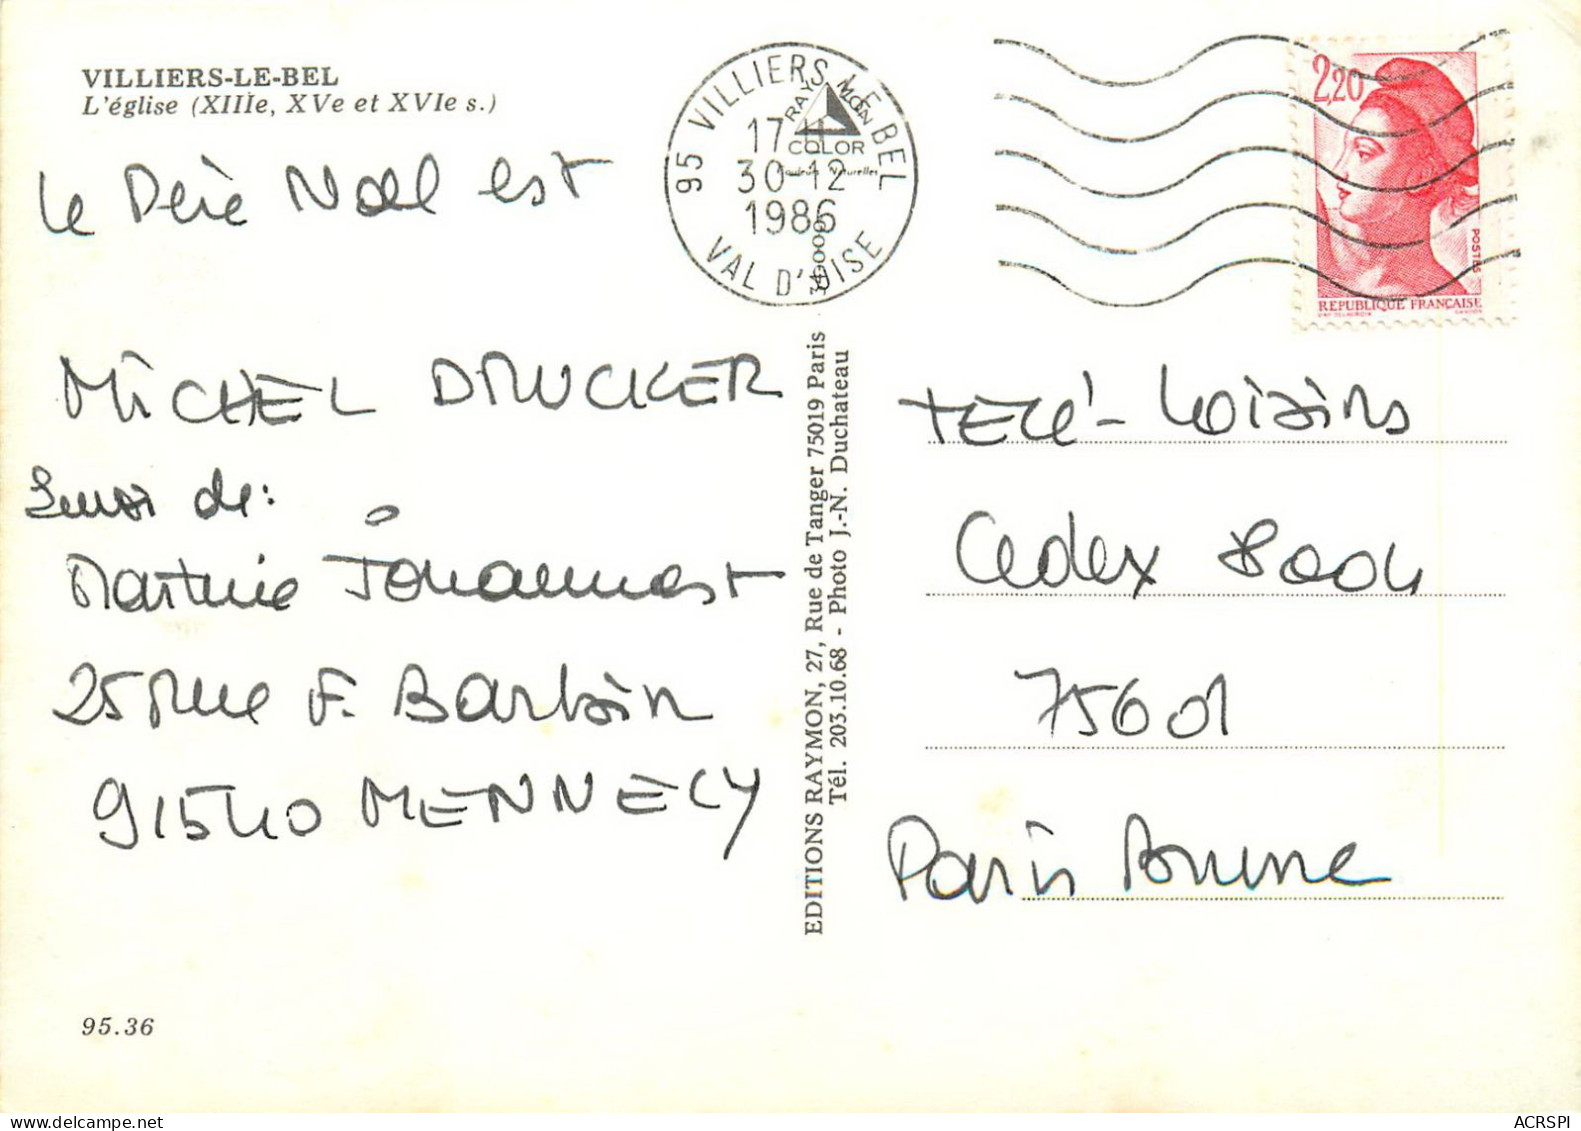 VILLIERS-LE-BEL
L'église (XIIIe, XVe et XVIe s.)
le Père Noel est
MICHEL DRUCKER
Envoi de:
Martine
25 Rue F. Barbin
91540 MENNECY
95.36
95 VILLIERS LE BEL
17 H
30-12
1986
VAL D'OISE
RAYMON
COLOR
EDITIONS RAYMON, 27, Rue de Tanger 75019 Paris
Tél. 203.10.68 - Photo J.-N. Duchateau
2,20
POSTES
REPUBLIQUE FRANÇAISE
TELÉ-Loisirs
Cedex 8004
75601
Paris Brune
ACRSPI